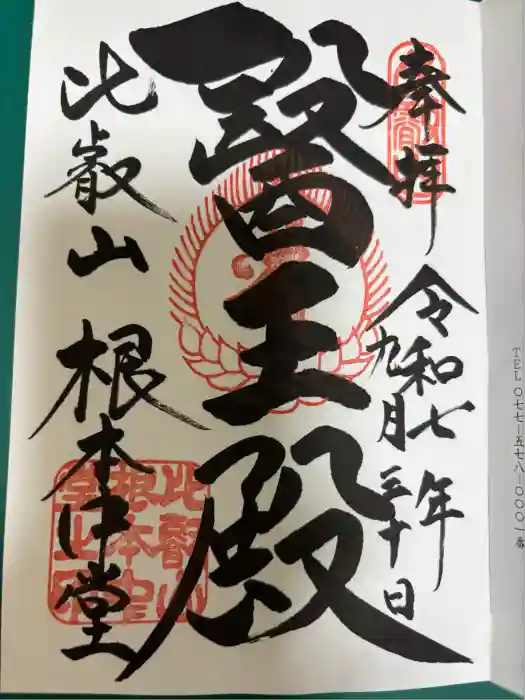 奉拝
令和七年
九月三十日
醫王殿
比叡山 根本中堂
TEL〇七七―五七八―〇〇〇一番